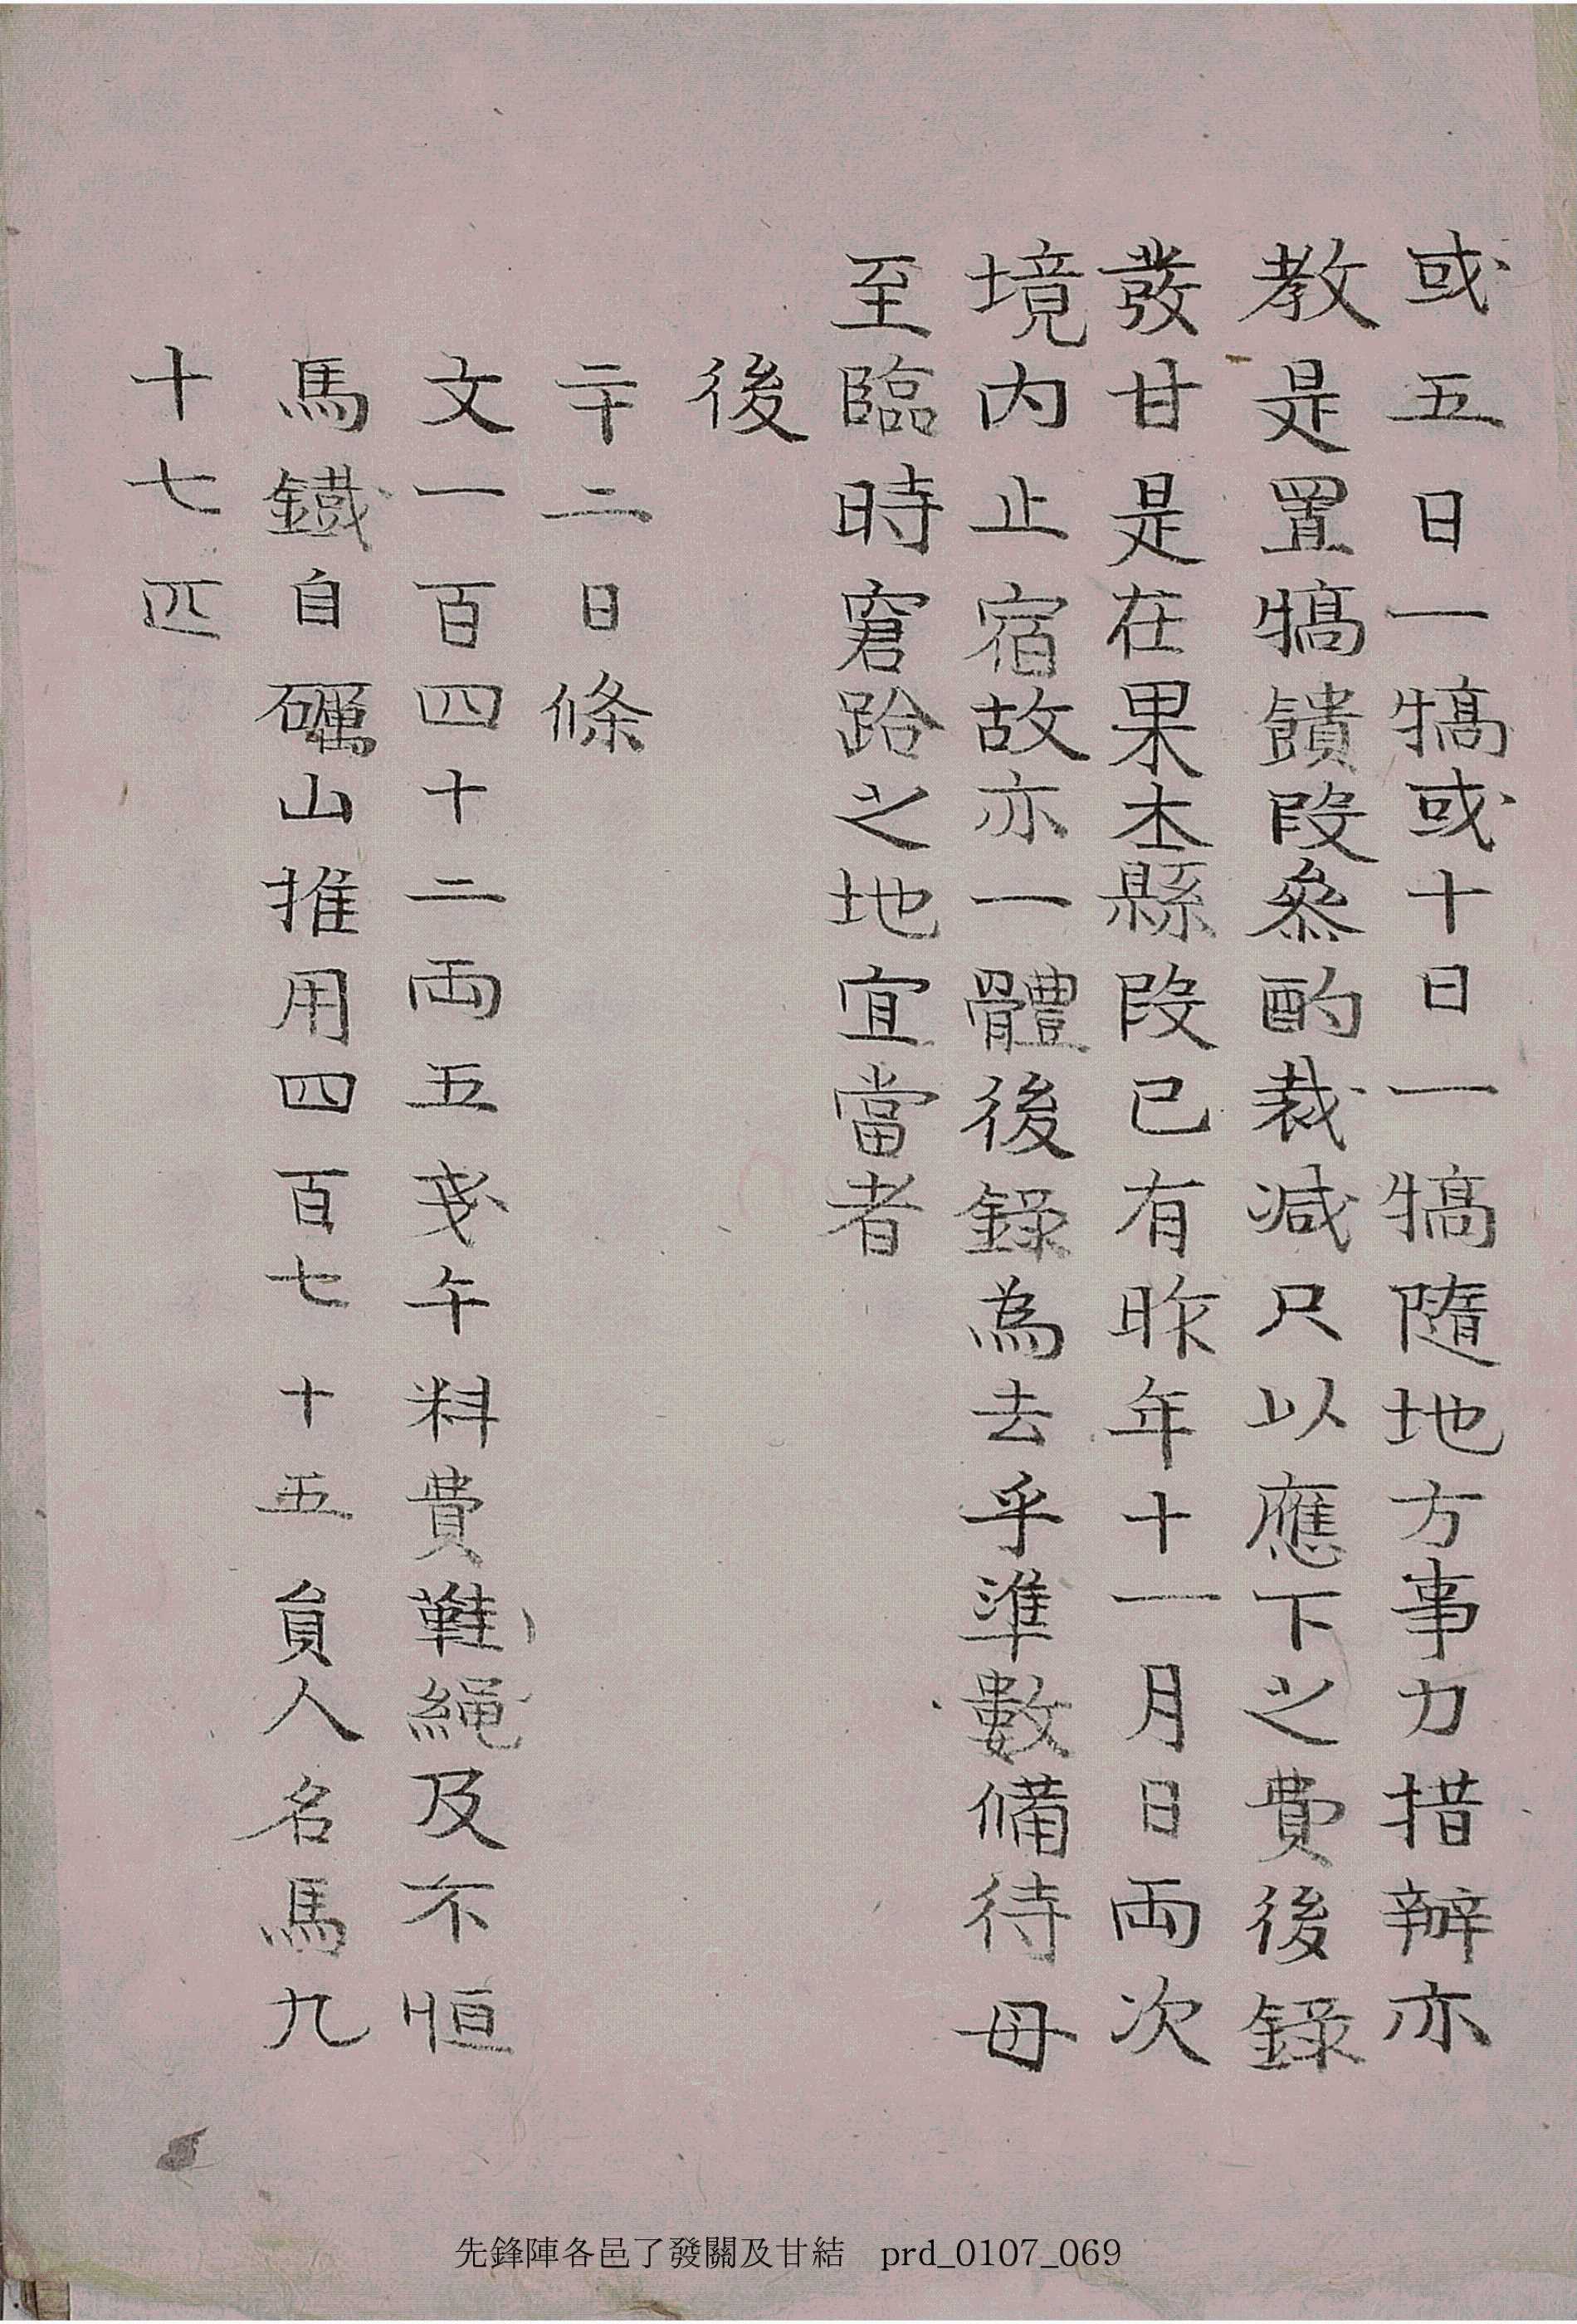 或五日一犒或十日一犒隨地方事力措辦亦
教是置犒饋段叅酌裁減只以應下之費後錄
發甘是在果本縣段已有昨年十一月日両次
境內止宿故亦一體後錄為去乎準數備待毋
至臨時窘跲之地宜當者
後
二十二日條
文一百四十二両五戔午料費鞋繩及不恒
馬鐵自礪山推用四百七十五員人名馬九
十七匹
先鋒陣各邑了發關及甘結 prd_0107_069